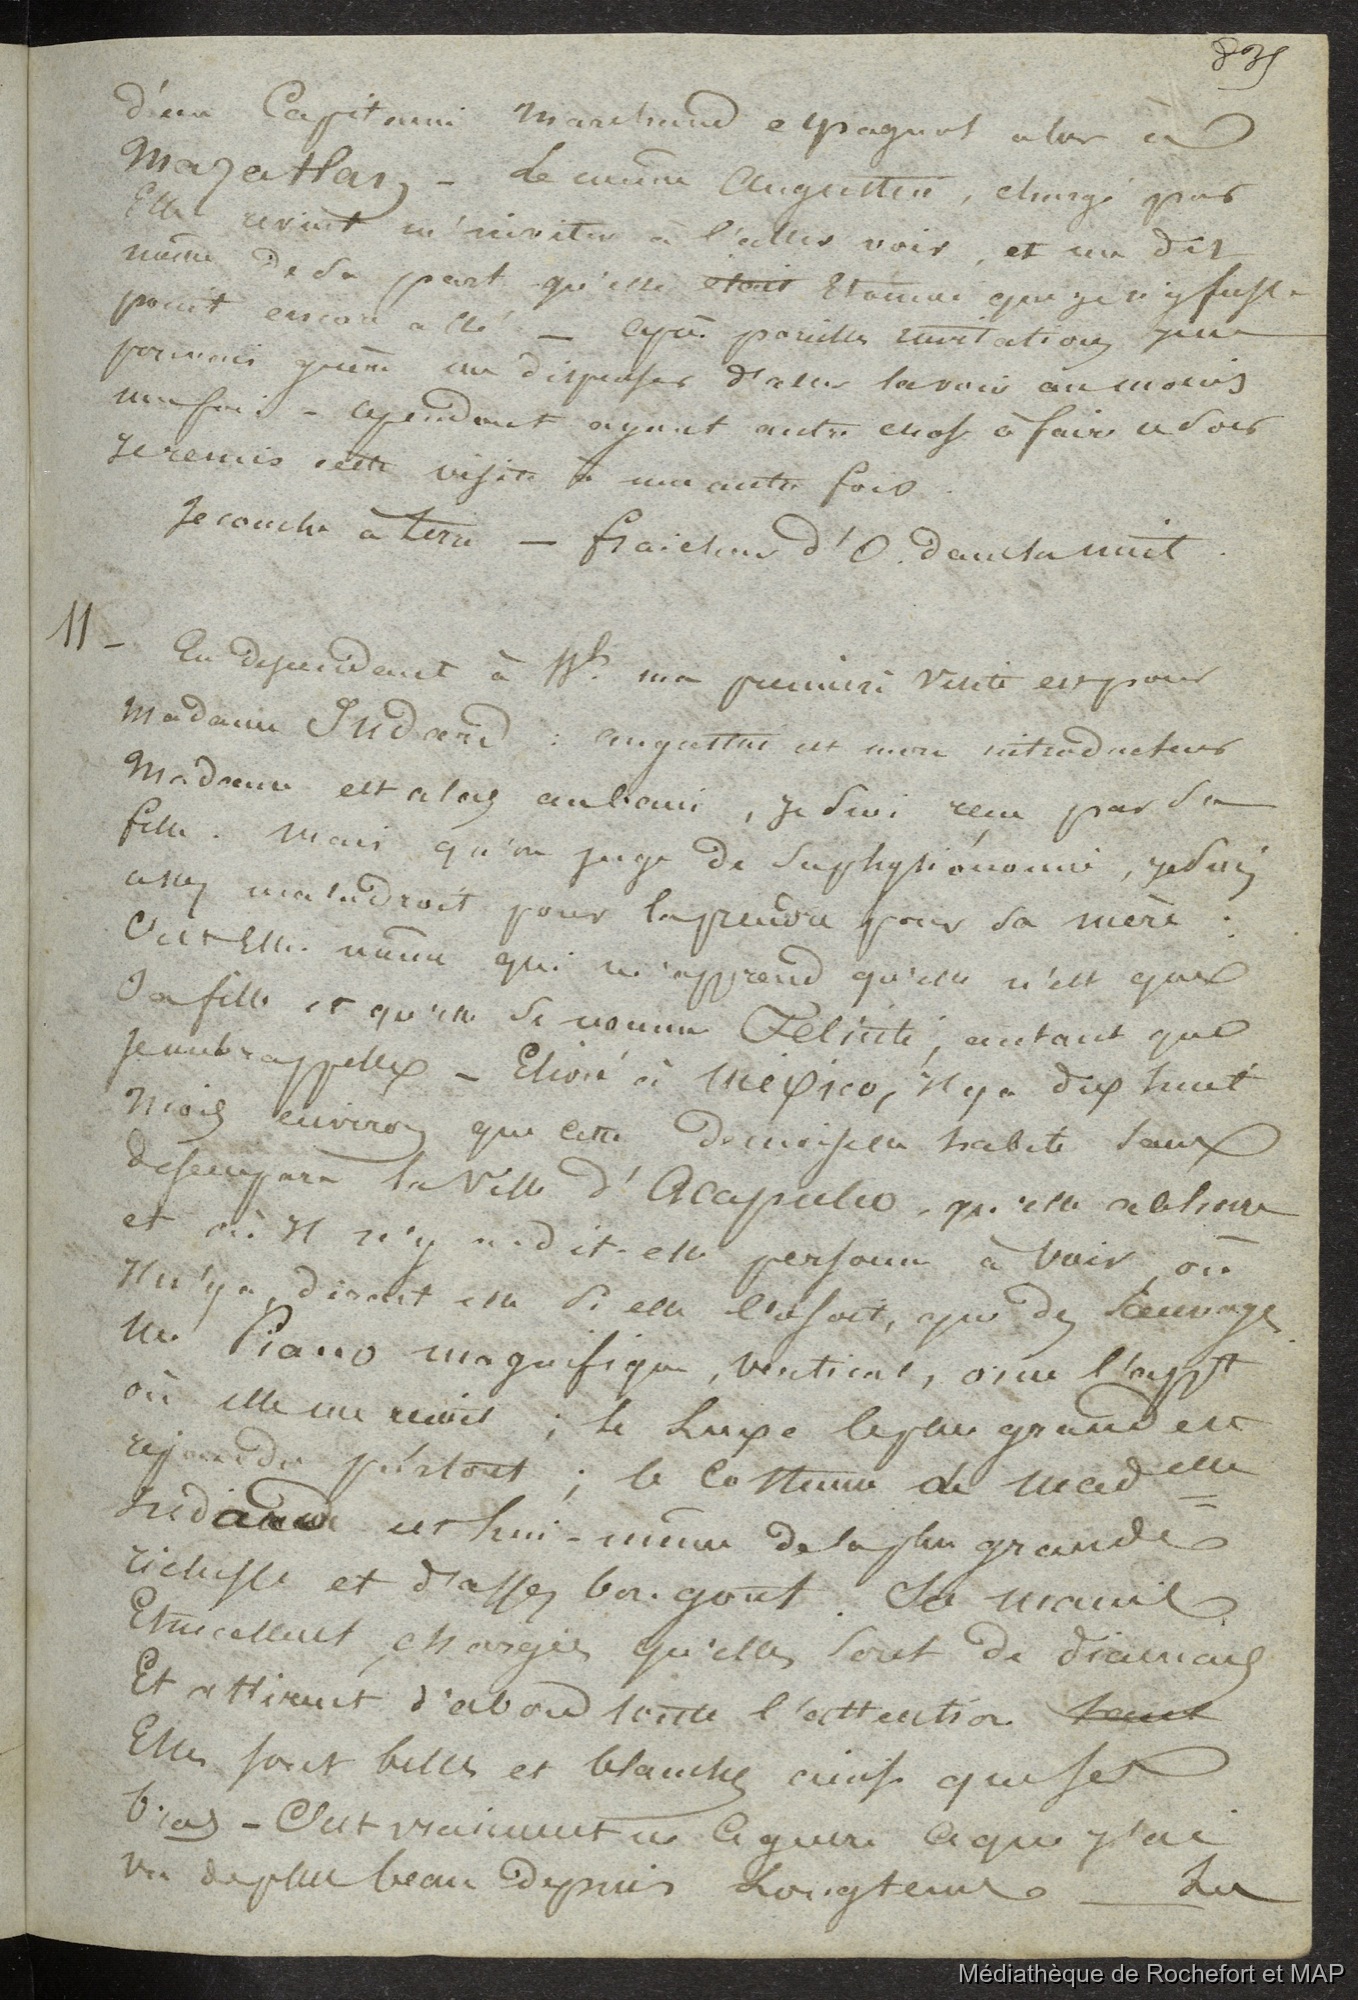 835
d'un Capitaine marchand espagnol alors à
Mazatlan - Le même Augustin, chargé par
Elle revint m'inviter à l'aller voir, et me dit
même de sa part qu'elle était Etonnée que je n'y fusse
point encore allé - après pareilles invitations je ne
pouvais guère me dispenser d'aller la voir au moins
une fois - cependant ayant autre chose à faire ce soir
Je remis cette visite à une autre fois.
Je couche à terre - fraicheur d'O. dans la nuit.
11 - En descendant à 11h. ma première visite est pour
Madame Indard : augustin est mon introducteur
Madame est alors au bain, je suis reçu par sa
fille. Mais qu'on juge de sa physionomie, je suis
assez maladroit pour la prendre pour sa mère :
C'est Elle même qui m'apprend qu'elle n'est que
Sa fille et qu'elle se nomme Félicité, autant que
Je me le rappelle - Elevé à Mexico, il y a dix huit
Mois environ que cette demoiselle habite sans
desemparer la Ville d'Acapulco, qu'elle abhorre
et où il n'y a dit-elle personne à voir, où
Il n'y a, dirait elle si elle l'osait, que des Sauvages.
Un Piano magnifique, vertical, orne l'appt
où elle me reçoit ; le Luxe le plus grand est
répandu partout ; le Costume de Madelle
Indard est lui-même de la plus grande
richesse et d'assez bon goût. Ses mains
Etincellent, chargées qu'elles sont de diamans
Et attirent d'abord toute l'attention
Elles sont belles et blanches ainsi que ses
bras - C'est vraiment ce que j'ai
vu de plus beau depuis Longtems - La